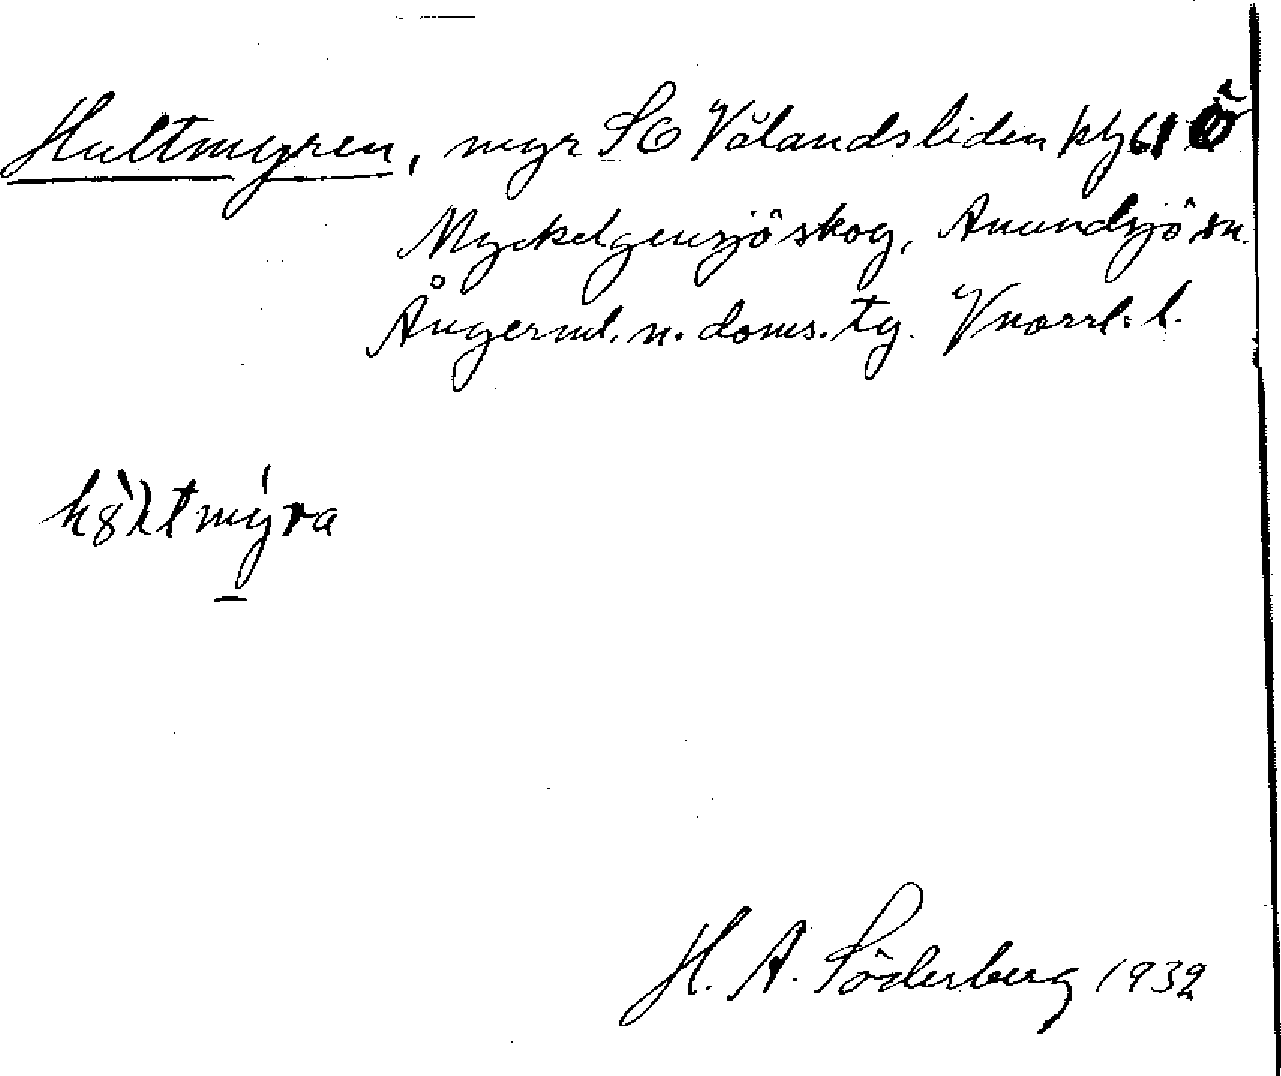 Hultmyren, myr SO Vålandsliden kbl 61 Ö
Myckelgensjöskog, Anundsjö sn.
Ångerml. n. doms. tg. Vnorrl. l.
H. A. Söderberg 1932